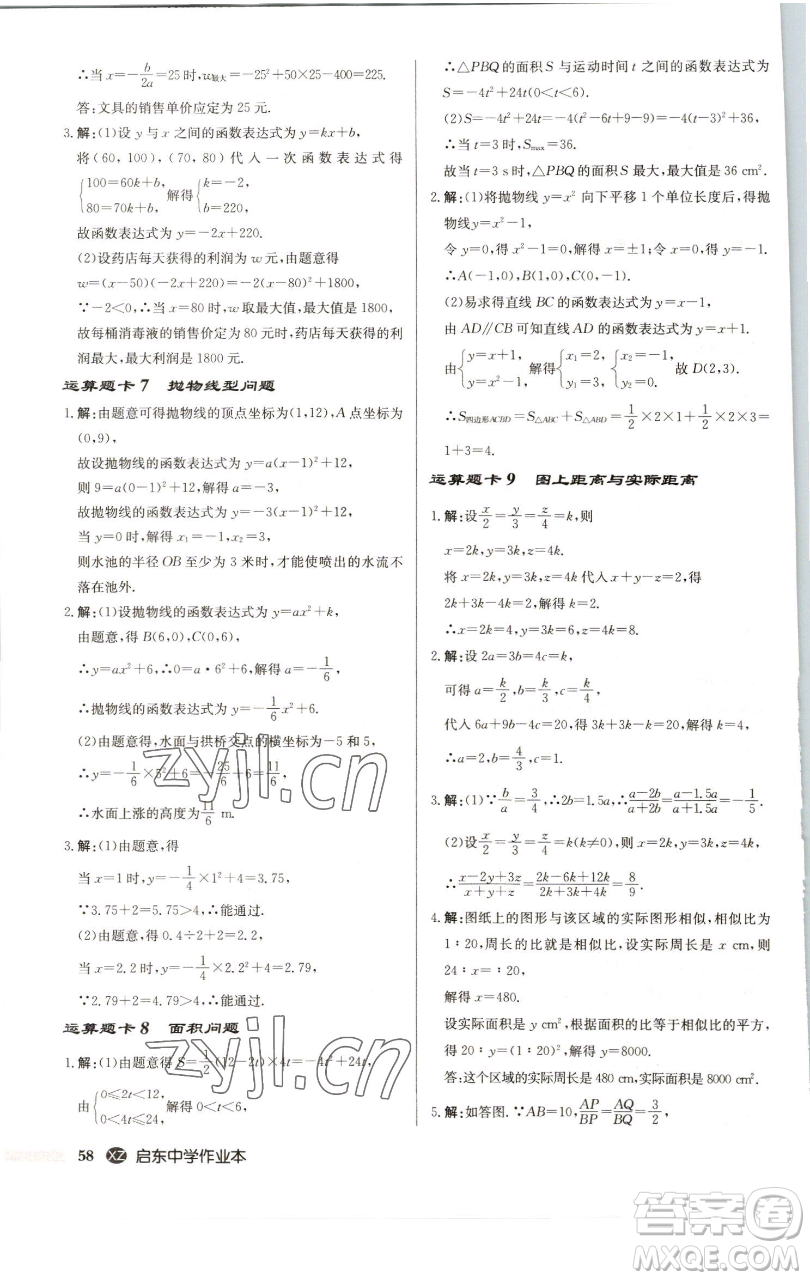 ∴当 x=-b/2a=25 时,w最大=-25²+50×25-400=225.
答:文具的销售单价应定为 25 元.
3. 解:(1)设 y 与 x 之间的函数表达式为 y=kx+b,
将(60,100),(70,80)代入一次函数表达式得
{100=60k+b, 80=70k+b, 解得{k=-2, b=220,
故函数表达式为 y=-2x+220.
(2)设药店每天获得的利润为 w 元,由题意得
w=(x-50)(-2x+220)=-2(x-80)²+1800,
∵-2<0,∴当 x=80 时,w 取最大值,最大值是 1800,
故每桶消毒液的销售价定为 80 元时,药店每天获得的利
润最大,最大利润是 1800 元.
运算题卡 7 抛物线型问题
1. 解:由题意可得抛物线的顶点坐标为(1,12),A 点坐标为
(0,9),
故设抛物线的函数表达式为 y=a(x-1)²+12,
则 9=a(0-1)²+12,解得 a=-3,
故抛物线的函数表达式为 y=-3(x-1)²+12,
当 y=0 时,解得 x₁=-1,x₂=3,
则水池的半径 OB 至少为 3 米时,才能使喷出的水流不
落在池外.
2. 解:(1)设抛物线的函数表达式为 y=ax²+k,
由题意,得 B(6,0),C(0,6),
∴y=ax²+6,∴0=a·6²+6,解得 a=-1/6,
∴抛物线的函数表达式为 y=-1/6x²+6.
(2)由题意得,水面与拱桥交点的横坐标为-5 和 5,
∴y=-1/6×5²+6=-25/6+6=11/6,
∴水面上涨的高度为11/6 m.
3. 解:(1)由题意,得
当 x=1 时,y=-1/4×1²+4=3.75,
∵3.75+2=5.75>4,∴能通过.
(2)由题意,得 0.4÷2+2=2.2,
当 x=2.2 时,y=-1/4×2.2²+4=2.79,
∵2.79+2=4.79>4,∴能通过.
运算题卡 8 面积问题
1. 解:(1)由题意得 S=1/2(12-2t)×4t=-4t²+24t,
由{0≤2t<12, 0<4t≤24, 解得 0<t<6,
58 XZ 启东中学作业本
∴△PBQ 的面积 S 与运动时间 t 之间的函数表达式为
S=-4t²+24t(0<t<6).
(2)S=-4t²+24t=-4(t²-6t+9-9)=-4(t-3)²+36,
∴当 t=3 时,Smax=36.
故当 t=3 s 时,△PBQ 的面积 S 最大,最大值是 36 cm².
2. 解:(1)将抛物线 y=x² 向下平移 1 个单位长度后,得抛
物线 y=x²-1,
令 y=0,得 0=x²-1,解得 x=±1;令 x=0,得 y=-1.
∴A(-1,0),B(1,0),C(0,-1).
(2)易求得直线 BC 的函数表达式为 y=x-1,
由 AD∥CB 可知直线 AD 的函数表达式为 y=x+1.
由{y=x+1, y=x²-1, 解得{x₁=2, y₁=3, {x₂=-1, y₂=0. 故 D(2,3).
∴S四边形ACBD=S△ABC+S△ABD=1/2×2×1+1/2×2×3=
1+3=4.
运算题卡 9 图上距离与实际距离
1. 解:设x/2=y/3=z/4=k,则
x=2k,y=3k,z=4k,
将 x=2k,y=3k,z=4k 代入 x+y-z=2,得
2k+3k-4k=2,解得 k=2,
∴x=2k=4,y=3k=6,z=4k=8.
2. 解:设 2a=3b=4c=k,
可得 a=k/2,b=k/3,c=k/4,
代入 6a+9b-4c=20,得 3k+3k-k=20,解得 k=4,
∴a=2,b=4/3,c=1.
3. 解:(1)∵b/a=3/4,∴2b=1.5a,∴(a-2b)/(a+2b)=(a-1.5a)/(a+1.5a)=-1/5.
(2)设x/2=y/3=z/4=k(k≠0),则 x=2k,y=3k,z=4k,
∴(x-2y+3z)/(x+y+z)=(2k-6k+12k)/(2k+3k+4k)=8/9.
4. 解:图纸上的图形与该区域的实际图形相似,相似比为
1∶20,周长的比就是相似比,设实际周长是 x cm,则
24∶x=1∶20,
解得 x=480.
设实际面积是 y cm²,根据面积的比等于相似比的平方,
得 20∶y=(1∶20)²,解得 y=8000.
答:这个区域的实际周长是 480 cm,实际面积是 8000 cm².
5. 解:如答图.∵AB=10,AP/BP=AQ/BQ=3/2,
zyjl.cn
zyjl.cn
答案卷
MXQE.COM